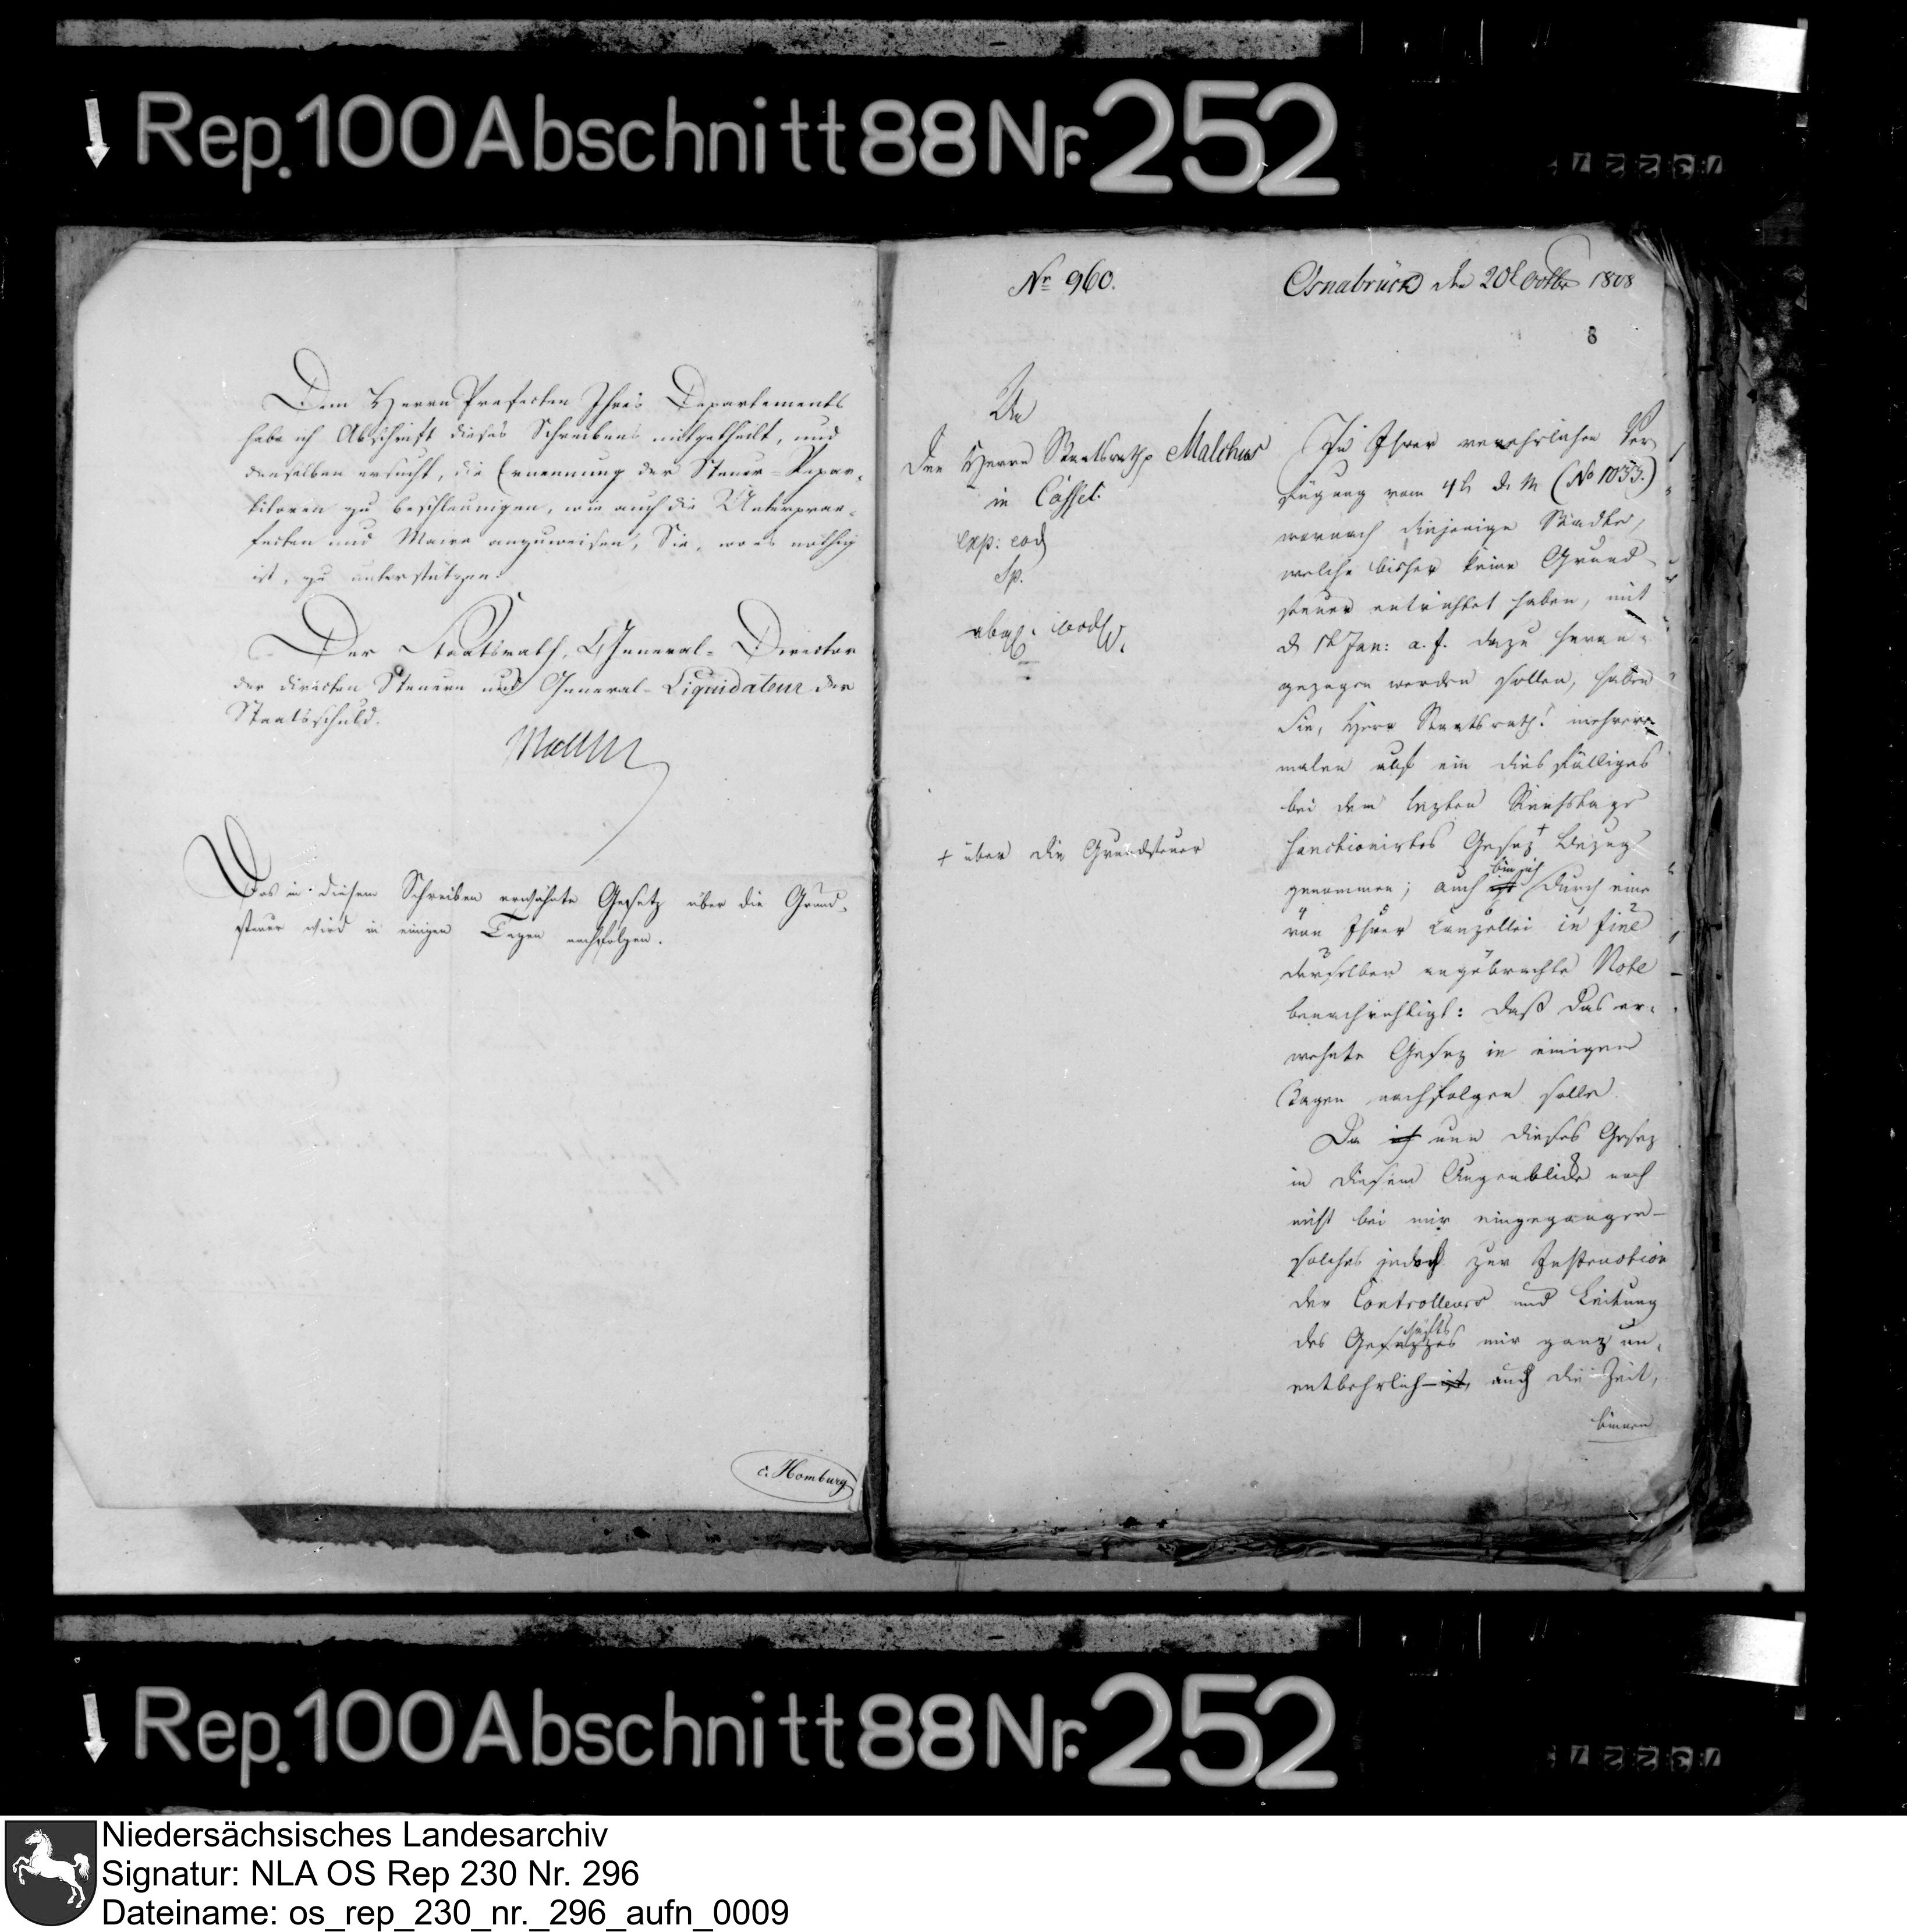 Rep. 100 Abschnitt 88 Nr. 252
Dem Herrn Präfecten Ihres Departements
habe ich Abschrift dieses Schreibens mitgetheilt, und
denselben ersucht, die Ernennung der Steuer-Repar-
titoren zu beschleunigen, wie auch die Unterprae-
fecten und Maire anzuweisen, Sie, wo es nöthig
ist, zu unterstützen.
Der Staatsrath, General-Director
der directen Steuern und General-Liquidateur der
Staatsschuld.
Das in diesem Schreiben erwähnte Gesetz über die Grund-
steuer wird in einigen Tagen nachfolgen.
c. Homburg
Nr 960.
Osnabrück den 20t Octbr 1808
8
An
Den Herrn Staatsrath Malchus
in Cassel.
exp: eod
Sp.
abges. eod.
+ über die Grundsteuer
In Ihrer verehrlichen Ver-
fügung vom 4t d. M (No 1033.)
wornach diejenige Städte,
welche bisher keine Grund-
steuer entrichtet haben, mit
d. 1t Jan: a. f. dazu heran-
gezogen werden sollen, haben
Sie, Herr Staatsrath! mehrere
malen auf ein diesfälliges
bei dem lezten Reichstage
sanctionirtes Gesez + Bezug
genommen; auch ist bin ich durch eine
von Ihrer Canzellei in fine
derselben angebrachte Note
benachrichtigt: daß das er-
wehnte Gesez in einigen
Tagen nachfolgen solle.
Da ist nun dieses Gesez
in diesem Augenblick noch
nicht bei mir eingegangen-
solches jedoch zur Instruction
der Controlleurs und Leitung
des Geschäfts mir ganz un-
entbehrlich - ist, auch die Zeit,
binnen
Rep. 100 Abschnitt 88 Nr. 252
Niedersächsisches Landesarchiv
Signatur: NLA OS Rep 230 Nr. 296
Dateiname: os_rep_230_nr._296_aufn_0009